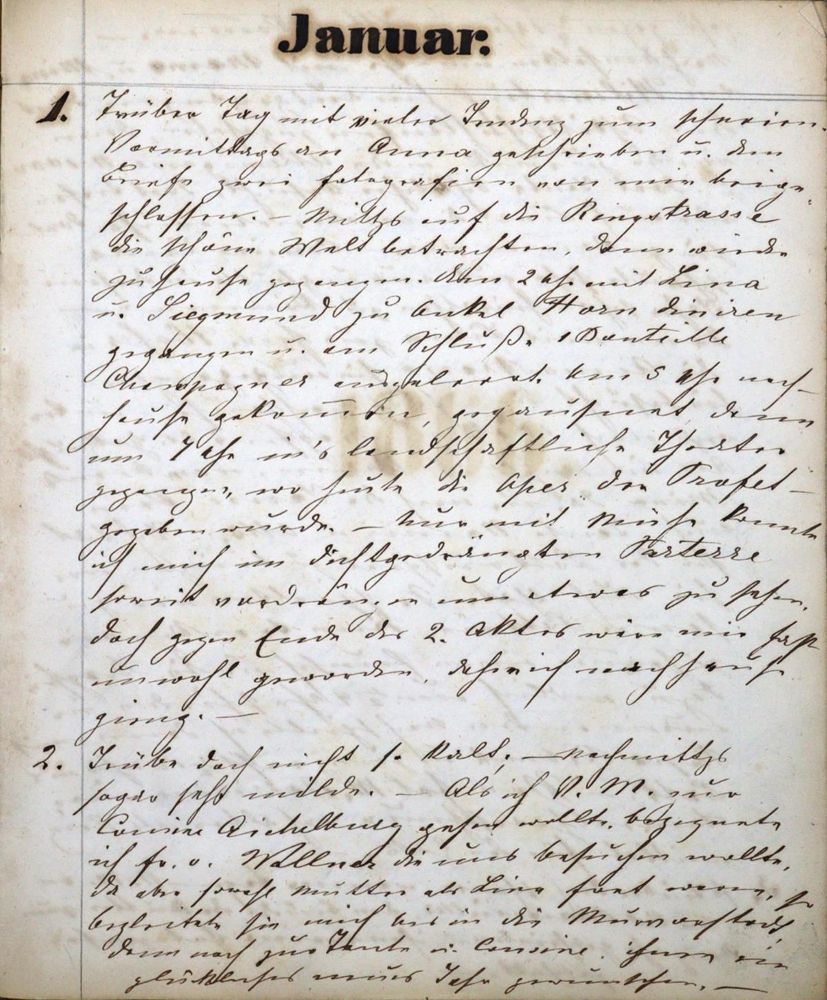 Januar.
1. Trüber Tag mit vieler Tendenz zum schneien.
Vormittags an Anna geschrieben u. dem
Briefe zwei Fotografien von mir beige-
schlossen. – Mittgs auf die Ringstrasse
die schöne Welt betrachten, dann wieder
zuhause gegangen. Um 2 Uhr mit Lina
u. Siegmund zu Onkel Horn diniren
gegangen u. am Schluße 1 Bouteille
Champagner ausgeleert. Um 5 Uhr nach-
hause gekommen, gejausnet dann
um 7 Uhr in's landschaftliche Theater
gegangen, wo heute die Oper der Profet –
gegeben wurde. – Nur mit Mühe konnte
ich mich im dichtgedrängten Parterre
soweit vordrängen um etwas zu sehen,
doch gegen Ende des 2. Aktes wäre mir fast
unwohl geworden, daher ich nachhause
gieng. –
2. Trübe doch nicht so kalt; – Nachmittgs
sogar sehr milde. – Als ich V. M. zur
Cousine Aichelburg gehen wollte, begegnete
ich Fr. v. Wallner die uns besuchen wollte,
da aber sowohl Mutter als Lina fort waren, so
begleitete sie mich bis in die Murvorstadt
dann noch zur Tante u. Cousine, ihnen ein
glückliches neues Jahr gewünschen. –